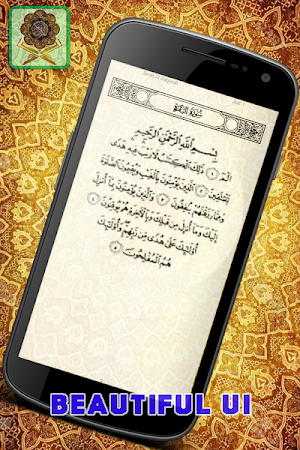 سورة البقرة
بسم الله الرحمن الرحيم
الم ۝١ ذلك الكتب لا ريب فيه هدى
للمتقين ۝٢ الذين يؤمنون بالغيب ويقيمون الصلوة
ومما رزقنهم ينفقون ۝٣ والذين يؤمنون بما أنزل
إليك وما أنزل من قبلك وبالأخرة هم يوقنون ۝٤
أولئك على هدى من ربهم وأولئك
هم المفلحون ۝٥
BEAUTIFUL UI